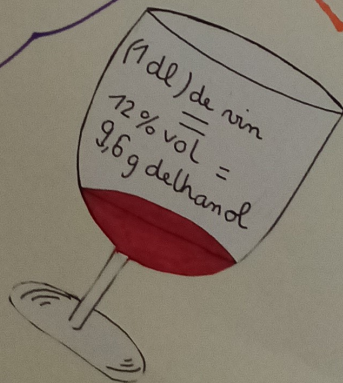 (1 dl) de vin
=
12% vol =
9,6 g delhanol